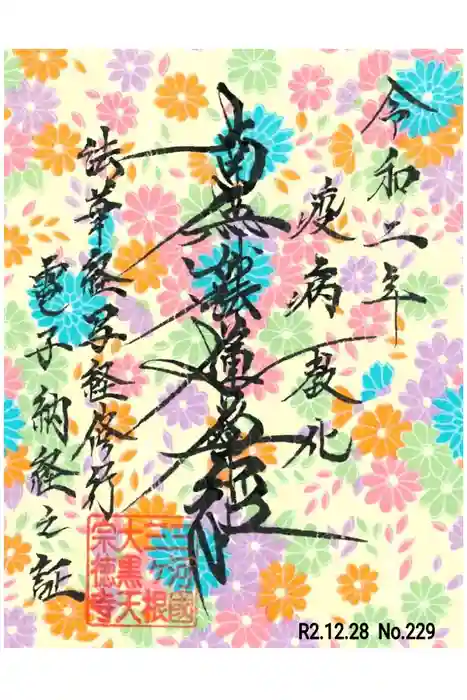 令和二年
疫病教化
南無妙法蓮華経
法華経写経修行
電子納経之証
三河國
三ヶ根
天黒天
宗徳寺
R2.12.28 No.229